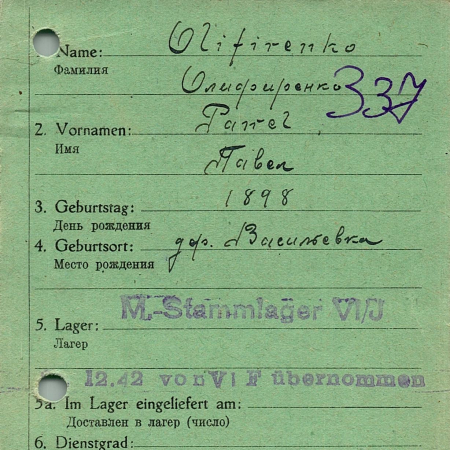 Name: Olifirenko
Фамилия Олифиренко
337
2. Vornamen: Pawel
Имя Павел
3. Geburtstag: 1898
День рождения
4. Geburtsort: дер. Васильевка
Место рождения
M.-Stammlager VI/J
5. Lager:
Лагерь
12.42 von VI F übernommen
5a. Im Lager eingeliefert am:
Доставлен в лагер (число)
6. Dienstgrad: